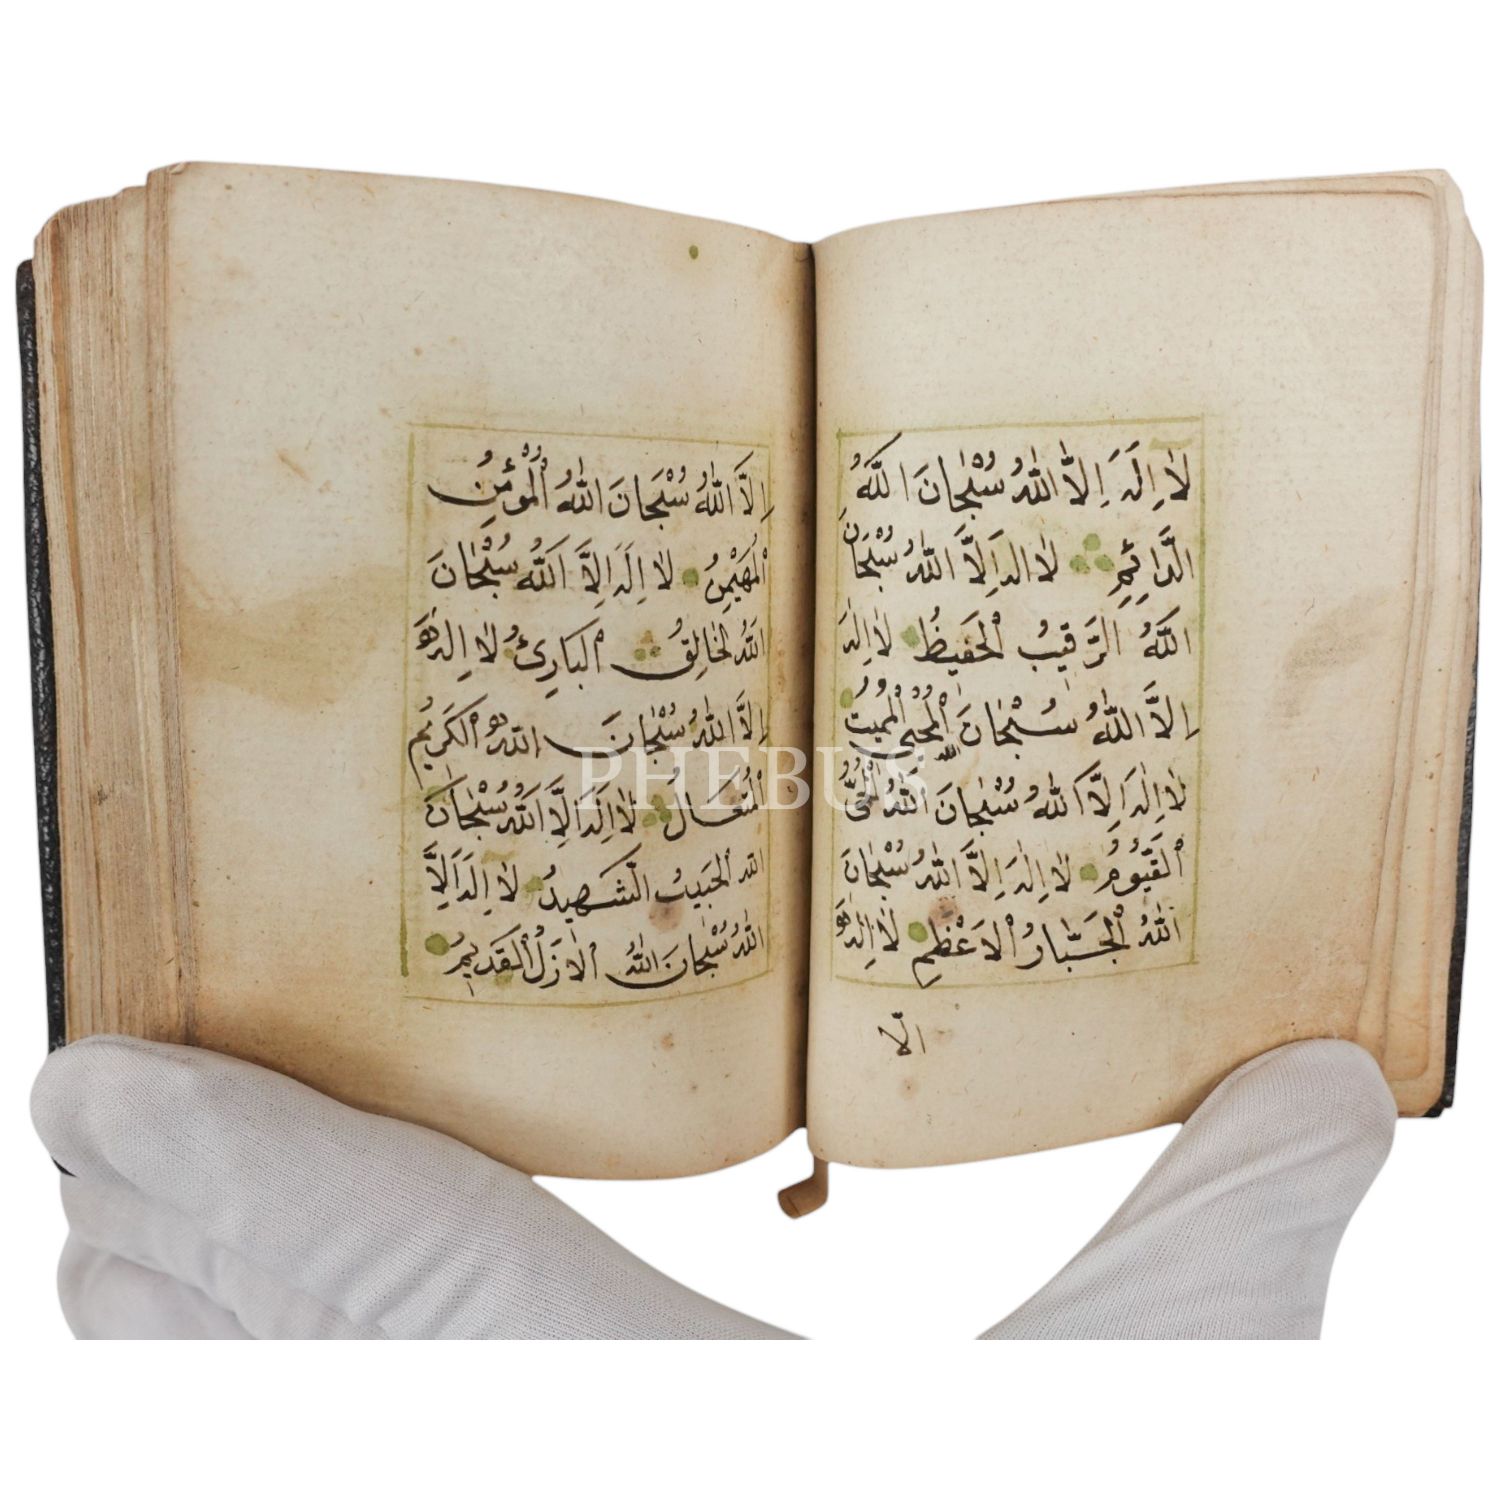 لَا اِلٰهَ اِلَّا اللّٰهُ سُبْحَانَ اللّٰهُ
الدَّائِمِ لَا اله اِلَّا اللّٰهُ سُبْحَانَ
اللّٰهُ الرَّقِيبُ الْحَفِيظُ لَا اِلٰهَ
اِلَّا اللّٰهُ سُبْحَانَ اللّٰه الْمُحْيِى الْمُمِيتُ
لَا اِلٰهَ اِلَّا اللّٰهُ سُبْحَانَ اللّٰهُ الْحَىُّ
الْقَيُّومُ لَا اِلٰهَ اِلَّا اللّٰهُ سُبْحَانَ
اللّٰهُ الْجَبَّارُ الْاَعْظِمِ لَا اِلٰهَ
الّا
اِلَّا اللّٰهُ سُبْحَانَ اللّٰهُ الْمُؤْمِنُ
الْمُهَيْمِنُ لَا اِلٰهَ اِلَّا اللّٰهُ سُبْحَانَ
اللّٰهُ الخَالِقُ الْبَارِئُ لَا اِلٰهَ
اِلَّا اللّٰهُ سُبْحَانَ اللّٰهُ الْكَرِيْمُ
الْمُتَعَالُ لَا اِلٰهَ اِلَّا اللّٰهُ سُبْحَانَ
اللّٰه الْحَبِيبُ الشَّهِيدُ لَا اِلٰهَ اِلَّا
اللّٰهُ سُبْحَانَ اللّٰهُ الْاَزَلُ الْقَدِيمُ
PHEBUS